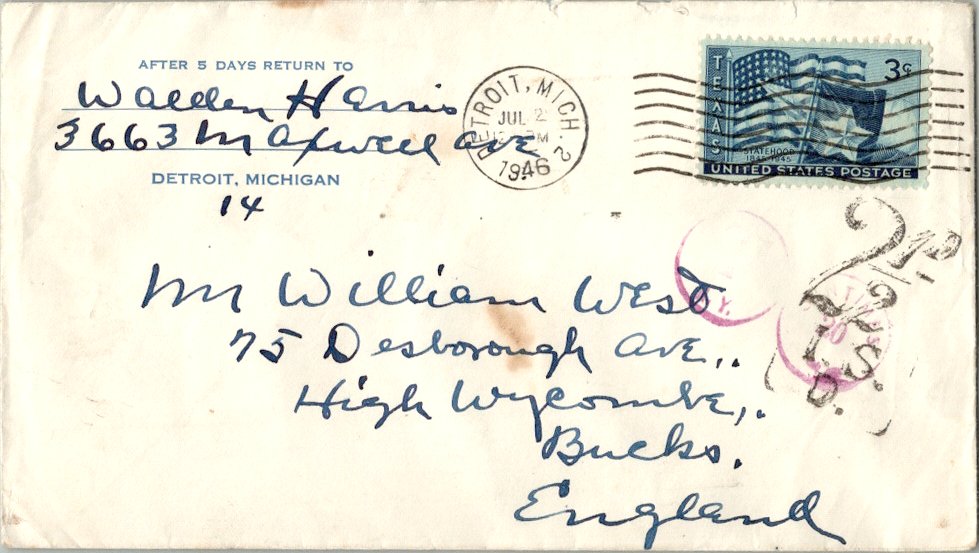 AFTER 5 DAYS RETURN TO
Walden Harris
3663 Maxwell Ave
DETROIT, MICHIGAN
14
DETROIT, MICH. 2
JUL 2
PM
1946
TEXAS
3¢
STATEHOOD
1845 1945
UNITED STATES POSTAGE
2 1/2 D
I.S.
D.
Y.
Mr William West
75 Desborough Ave,.
High Wycombe,.
Bucks.
England